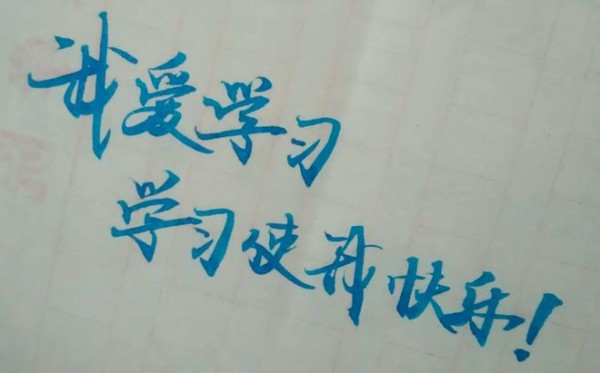 我爱学习
学习使我快乐!